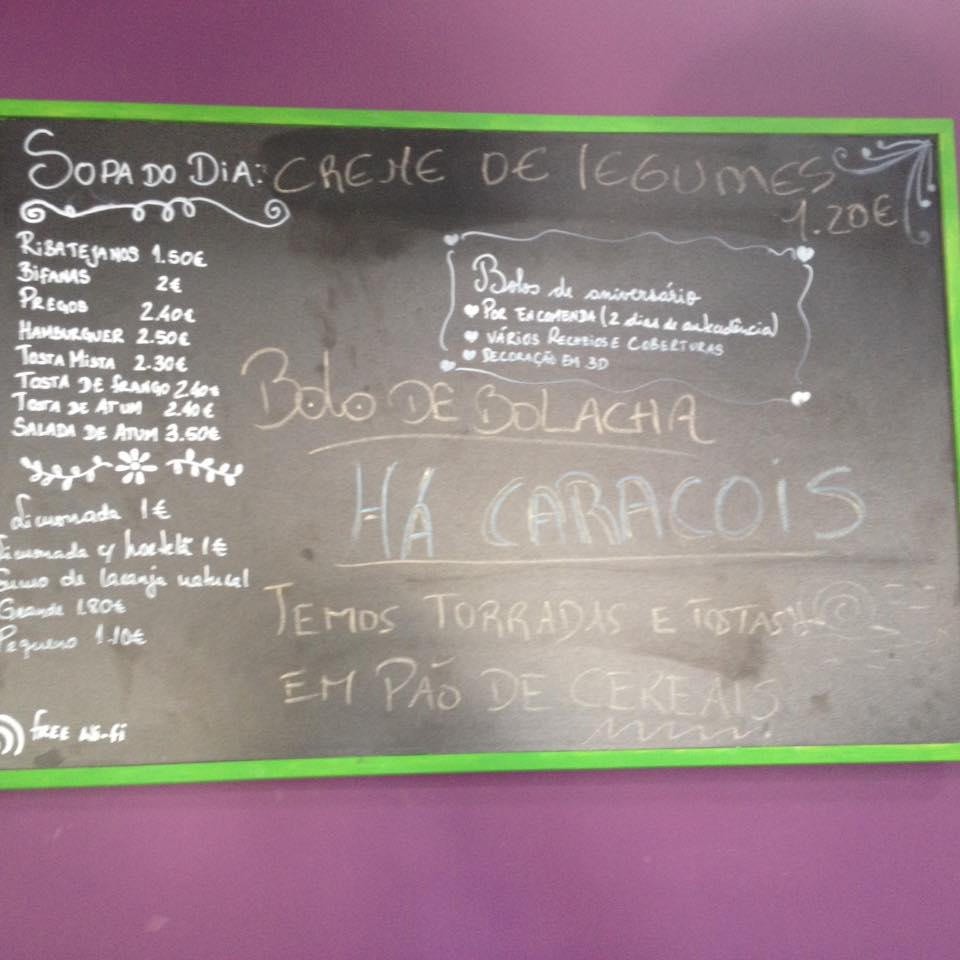 SOPA DO DIA: CREME DE LEGUMES
1.20€
RIBATEJANOS 1.50€
BIFANAS 2€
PREGOS 2.40€
HAMBURGUER 2.50€
TOSTA MISTA 2.30€
TOSTA DE FRANGO 2.40€
TOSTA DE ATUM 2.40€
SALADA DE ATUM 3.50€
Limonada 1€
Limonada c/ hortelã 1€
Sumo de laranja natural
Grande 1.80€
Pequeno 1.10€
free Wi-fi
Bolos de aniversário
POR ENCOMENDA (2 dias de antecedência)
VÁRIOS RECHEIOS E COBERTURAS
DECORAÇÃO EM 3D
BOLO DE BOLACHA
HÁ CARACOIS
TEMOS TORRADAS E TOSTAS
EM PÃO DE CEREAIS